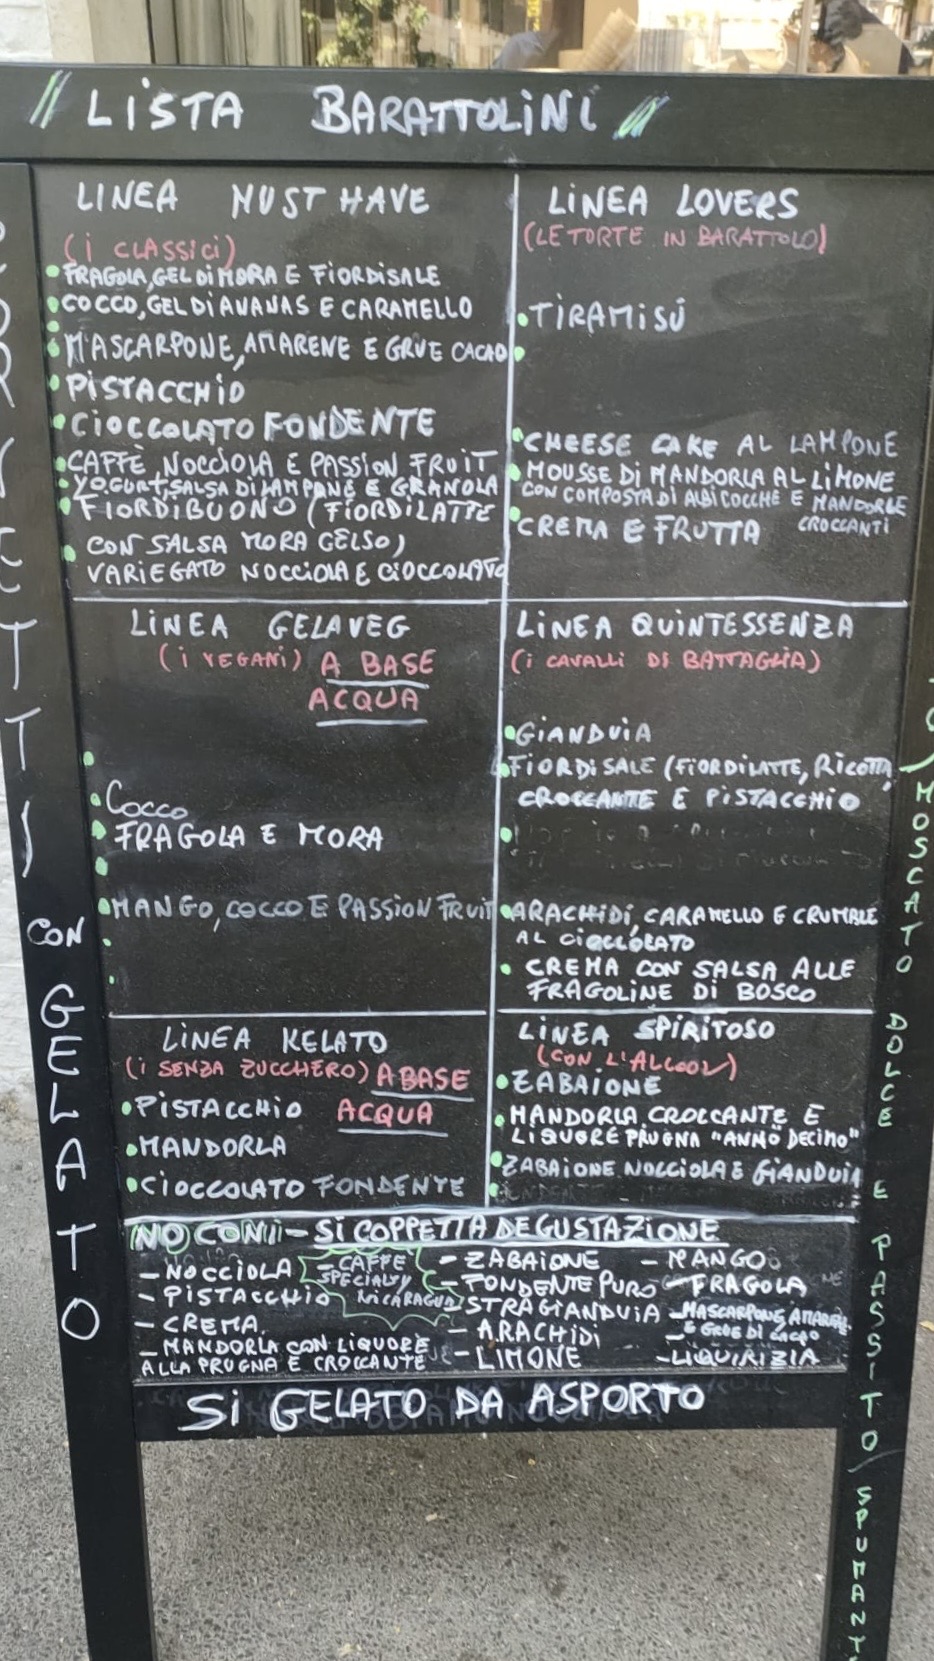 // LISTA BARATTOLINI //
LINEA MUST HAVE
(I CLASSICI)
• FRAGOLA, GEL DI MORA E FIORDISALE
• COCCO, GEL DI ANANAS E CARAMELLO
• MASCARPONE, AMARENE E GRUE CACAO
• PISTACCHIO
• CIOCCOLATO FONDENTE
• CAFFÈ, NOCCIOLA E PASSION FRUIT
• YOGURT, SALSA DI LAMPONE E GRANOLA
• FIORDIBUONO (FIORDILATTE
CON SALSA MORA GELSO,
VARIEGATO NOCCIOLA E CIOCCOLATO
LINEA LOVERS
(LE TORTE IN BARATTOLO)
• TIRAMISÚ
• CHEESE CAKE AL LAMPONE
• MOUSSE DI MANDORLA AL LIMONE
CON COMPOSTA DI ALBICOCCHE E MANDORLE
CROCCANTI
• CREMA E FRUTTA
LINEA GELAVEG
(I VEGANI) A BASE
ACQUA
• COCCO
• FRAGOLA E MORA
• MANGO, COCCO E PASSION FRUIT
LINEA QUINTESSENZA
(I CAVALLI DI BATTAGLIA)
• GIANDUIA
• FIORDISALE (FIORDILATTE, RICOTTA,
CROCCANTE E PISTACCHIO
• ARACHIDI, CARAMELLO E CRUMBLE
AL CIOCCOLATO
• CREMA CON SALSA ALLE
FRAGOLINE DI BOSCO
LINEA KELATO
(I SENZA ZUCCHERO) A BASE
ACQUA
• PISTACCHIO
• MANDORLA
• CIOCCOLATO FONDENTE
LINEA SPIRITOSO
(CON L'ALCOOL)
• ZABAIONE
• MANDORLA CROCCANTE E
LIQUORE PRUGNA "ANMO DECIMO"
• ZABAIONE NOCCIOLA E GIANDUIA
NO CONI - SI COPPETTA DEGUSTAZIONE
- NOCCIOLA
- PISTACCHIO
- CREMA
- MANDORLA CON LIQUORE
ALLA PRUGNA E CROCCANTE
- CAFFE
SPECIALTY
NICARAGUA
- ZABAIONE
- FONDENTE PURO
STRAGIANDUIA
- ARACHIDI
- LIMONE
- MANGO
- FRAGOLA
- MASCARPONE, AMARENE
E GRUE DI CACAO
- LIQUIRIZIA
SI GELATO DA ASPORTO
CON GELATO
MOSCATO DOLCE E PASSITO/SPUMANT